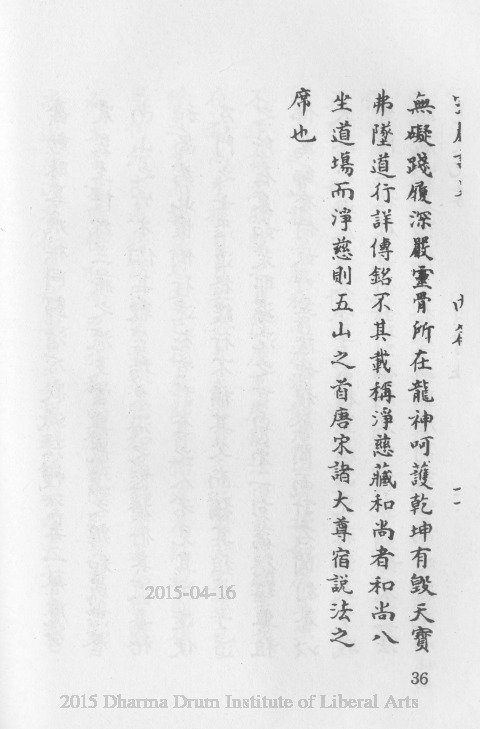 無礙踐履深嚴靈骨所在龍神呵護乾坤有毀天寶
弗墜道行詳傳銘不具載稱淨慈藏和尚者和尚八
坐道場而淨慈則五山之首唐宋諸大尊宿說法之
席也
36
2015-04-16
2015 Dharma Drum Institute of Liberal Arts